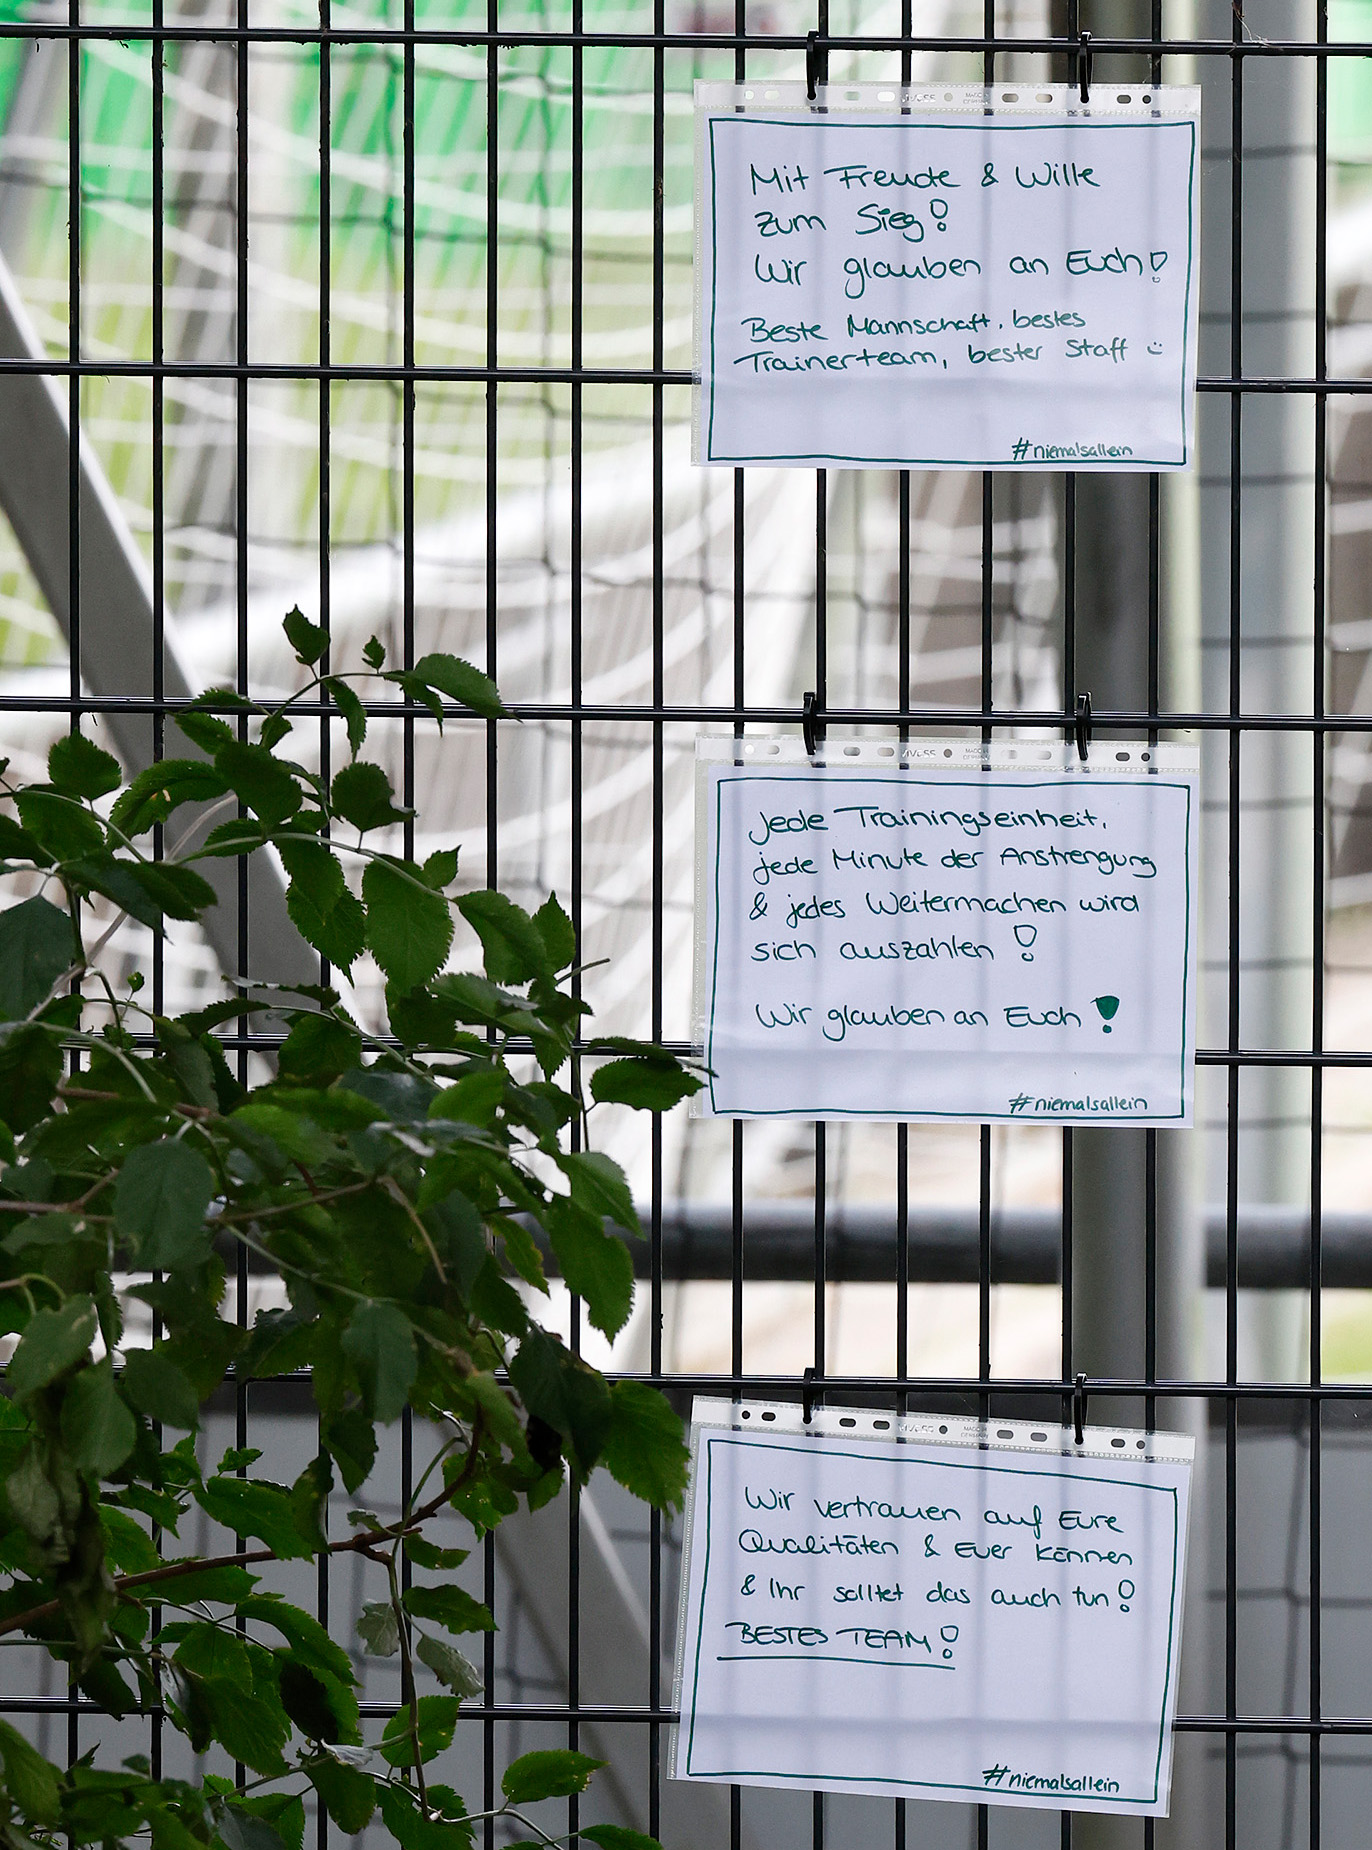 Mit Freude & Wille
zum Sieg!
Wir glauben an Euch!
Beste Mannschaft, bestes
Trainerteam, bester Staff
#niemalsallein
Jede Trainingseinheit,
jede Minute der Anstrengung
& jedes Weitermachen wird
sich auszahlen!
Wir glauben an Euch!
#niemalsallein
Wir vertrauen auf Eure
Qualitäten & Euer Können
& Ihr solltet das auch tun!
BESTES TEAM!
#niemalsallein